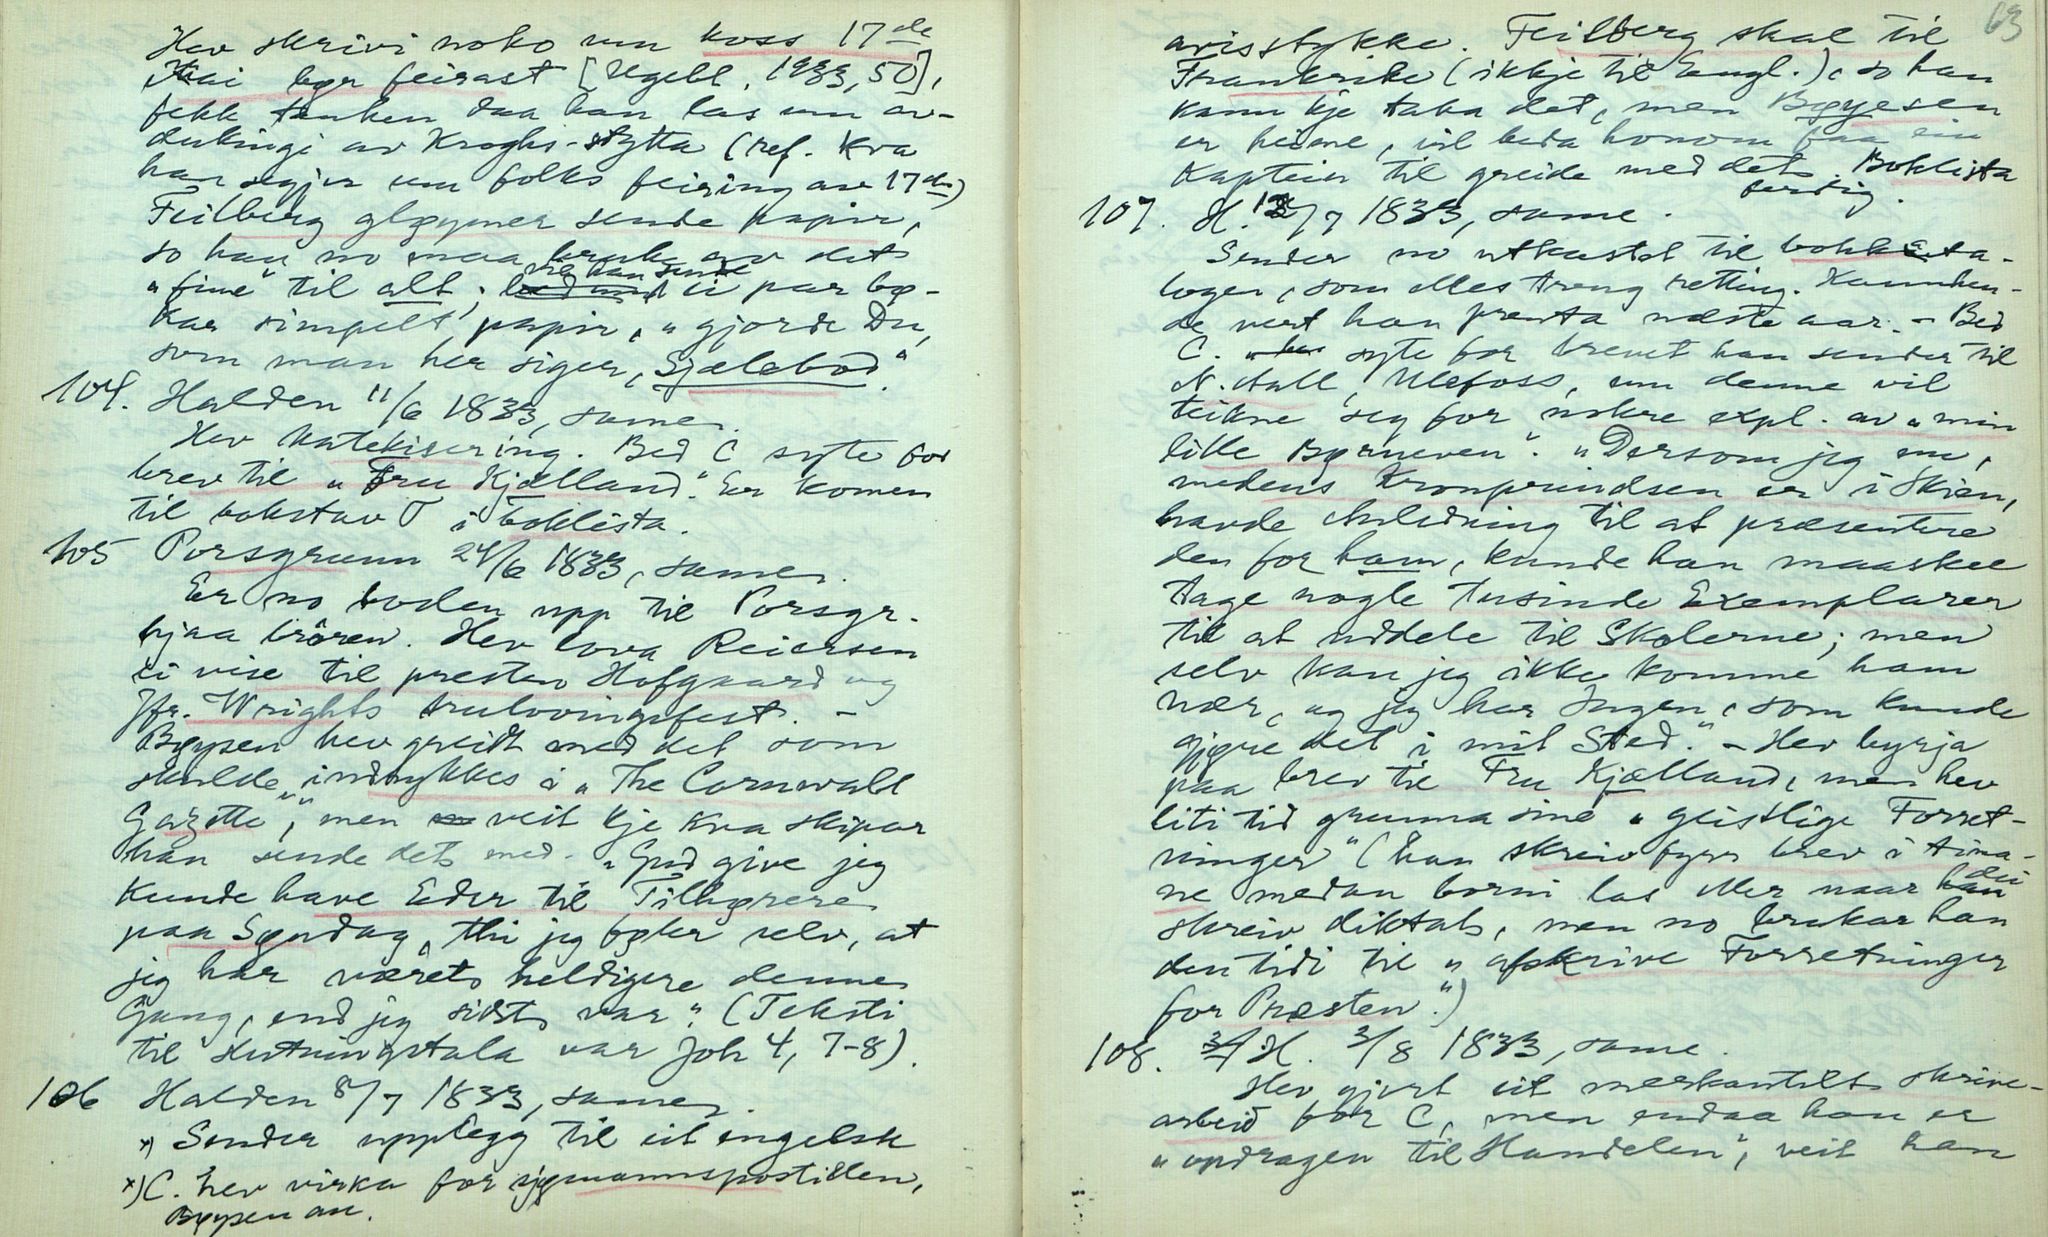 Hev skrivi noko um koss 17de
Mai bør feirast [Ugebl. 1933, 50],
fekk tanken daa han las um av-
dukingi av Kroghs-støtta (ref. kva
han segjer um folks feiring av 17de)
Feilberg gløymer sende papir,
so han no maa bruke av det
"fine" til alt; vil han sende ei par bø-
kar simpelt papir, "gjorde Du,
som man her siger, Sjælebod."
104. Halden 11/6 1833, same.
Hev katekisering. Bed C syte for
brev til "Fru Kjælland." Er komen
til bokstav T i boklista.
105 Porsgrunn 24/6 1833, same.
Er no boden upp til Porsgr.
hjaa broren. Hev lova Reiersen
ei vise til presten Hofgaard og
Jfr. Wrights trulovingsfest. –
Bøysen hev greidt med det som
skulde "indrykkes i "The Cornwald
Gazette", men veit kje kva skipar
han sende det med. "Gud give jeg
kunde have Eder til Tilhørere
paa Søndag, thi jeg føler selv, at
jeg har været heldigere denne
Gang, end jeg sidst var." (Teksti
til slutningstala var Joh 4, 7-8).
106 Halden 8/7 1833, same.
x) Sender upplegg til eit engelsk
x) C. hev virka for sjømannspostillen,
Bøysen au.
63
avisstykke. Feilberg skal til
Frankrike (ikkje til Engl.), so han
kann kje taka det, men Bøyesen
er heime, vil beda honom faa ein
Kaptein til greide med det. Boklista
ferdig.
107. H. 12/7 1833, same.
Sender no utkastet til bokkata-
logen, som elles treng retting. Kannhen-
de vert han prenta næste aar. – Bed
C. syte for brevet han sender til
N. Aall, Ulefoss, um denne vil
teikne seg for nokre expl. av "min
lille Børneven". "Dersom jeg nu,
medens Kronprindsen er i Skien,
havde Anledning til at præsentere
den for ham, kunde han maaskee
tage nogle tusinde Exemplarer
til at uddele til Skolerne; men
selv kan jeg ikke komme ham
nær, og jeg har Ingen, som kunde
gjøre det i mit Sted." – Hev byrja
paa brev til Fru Kjælland, men hev
liti tid grunna sine "geistlige Forret-
ninger" (han skreiv fyrr brev i tima-
ne medan borni las eller naar dei
skreiv diktat, men no brukar han
den tidi til "afskrive Forretninger
for Præsten.")
108. H. 3/8 1833, same.
Hev gjort eit merkantilt skrive-
arbeid for C, men endaa han er
"opdragen til Handelen", veit han